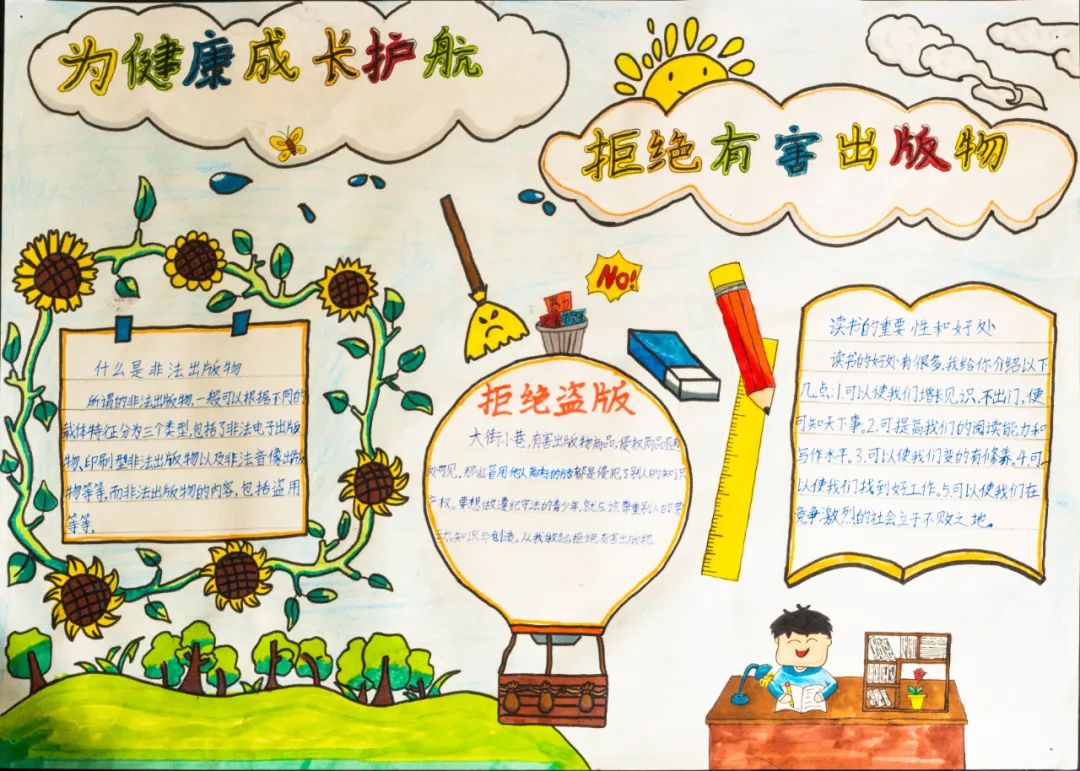 为健康成长护航
拒绝有害出版物
No!
暴力
什么是非法出版物
所谓的非法出版物,一般可以根据不同的
载体特征分为三个类型,包括了非法电子出版
物、印刷型非法出版物以及非法音像出版
物等等,而非法出版物的内容,包括盗用
等等.
拒绝盗版
大街小巷,有害出版物商品,侵权商品随
处可见。那些冒用他人商标的的都是侵犯了别人的知识
产权。要想做遵纪守法的青少年,就应该尊重别人的劳
动,知识与创造。从我做起,拒绝有害出版物.
读书的重要性和好处
读书的好处有很多,我给你介绍以下
几点:1.可以使我们增长见识,不出门,便
可知天下事。2.可提高我们的阅读能力和
写作水平。3.可以使我们变的有修养。4.可
以使我们找到好工作。5.可以使我们在
竞争激烈的社会立于不败之地。